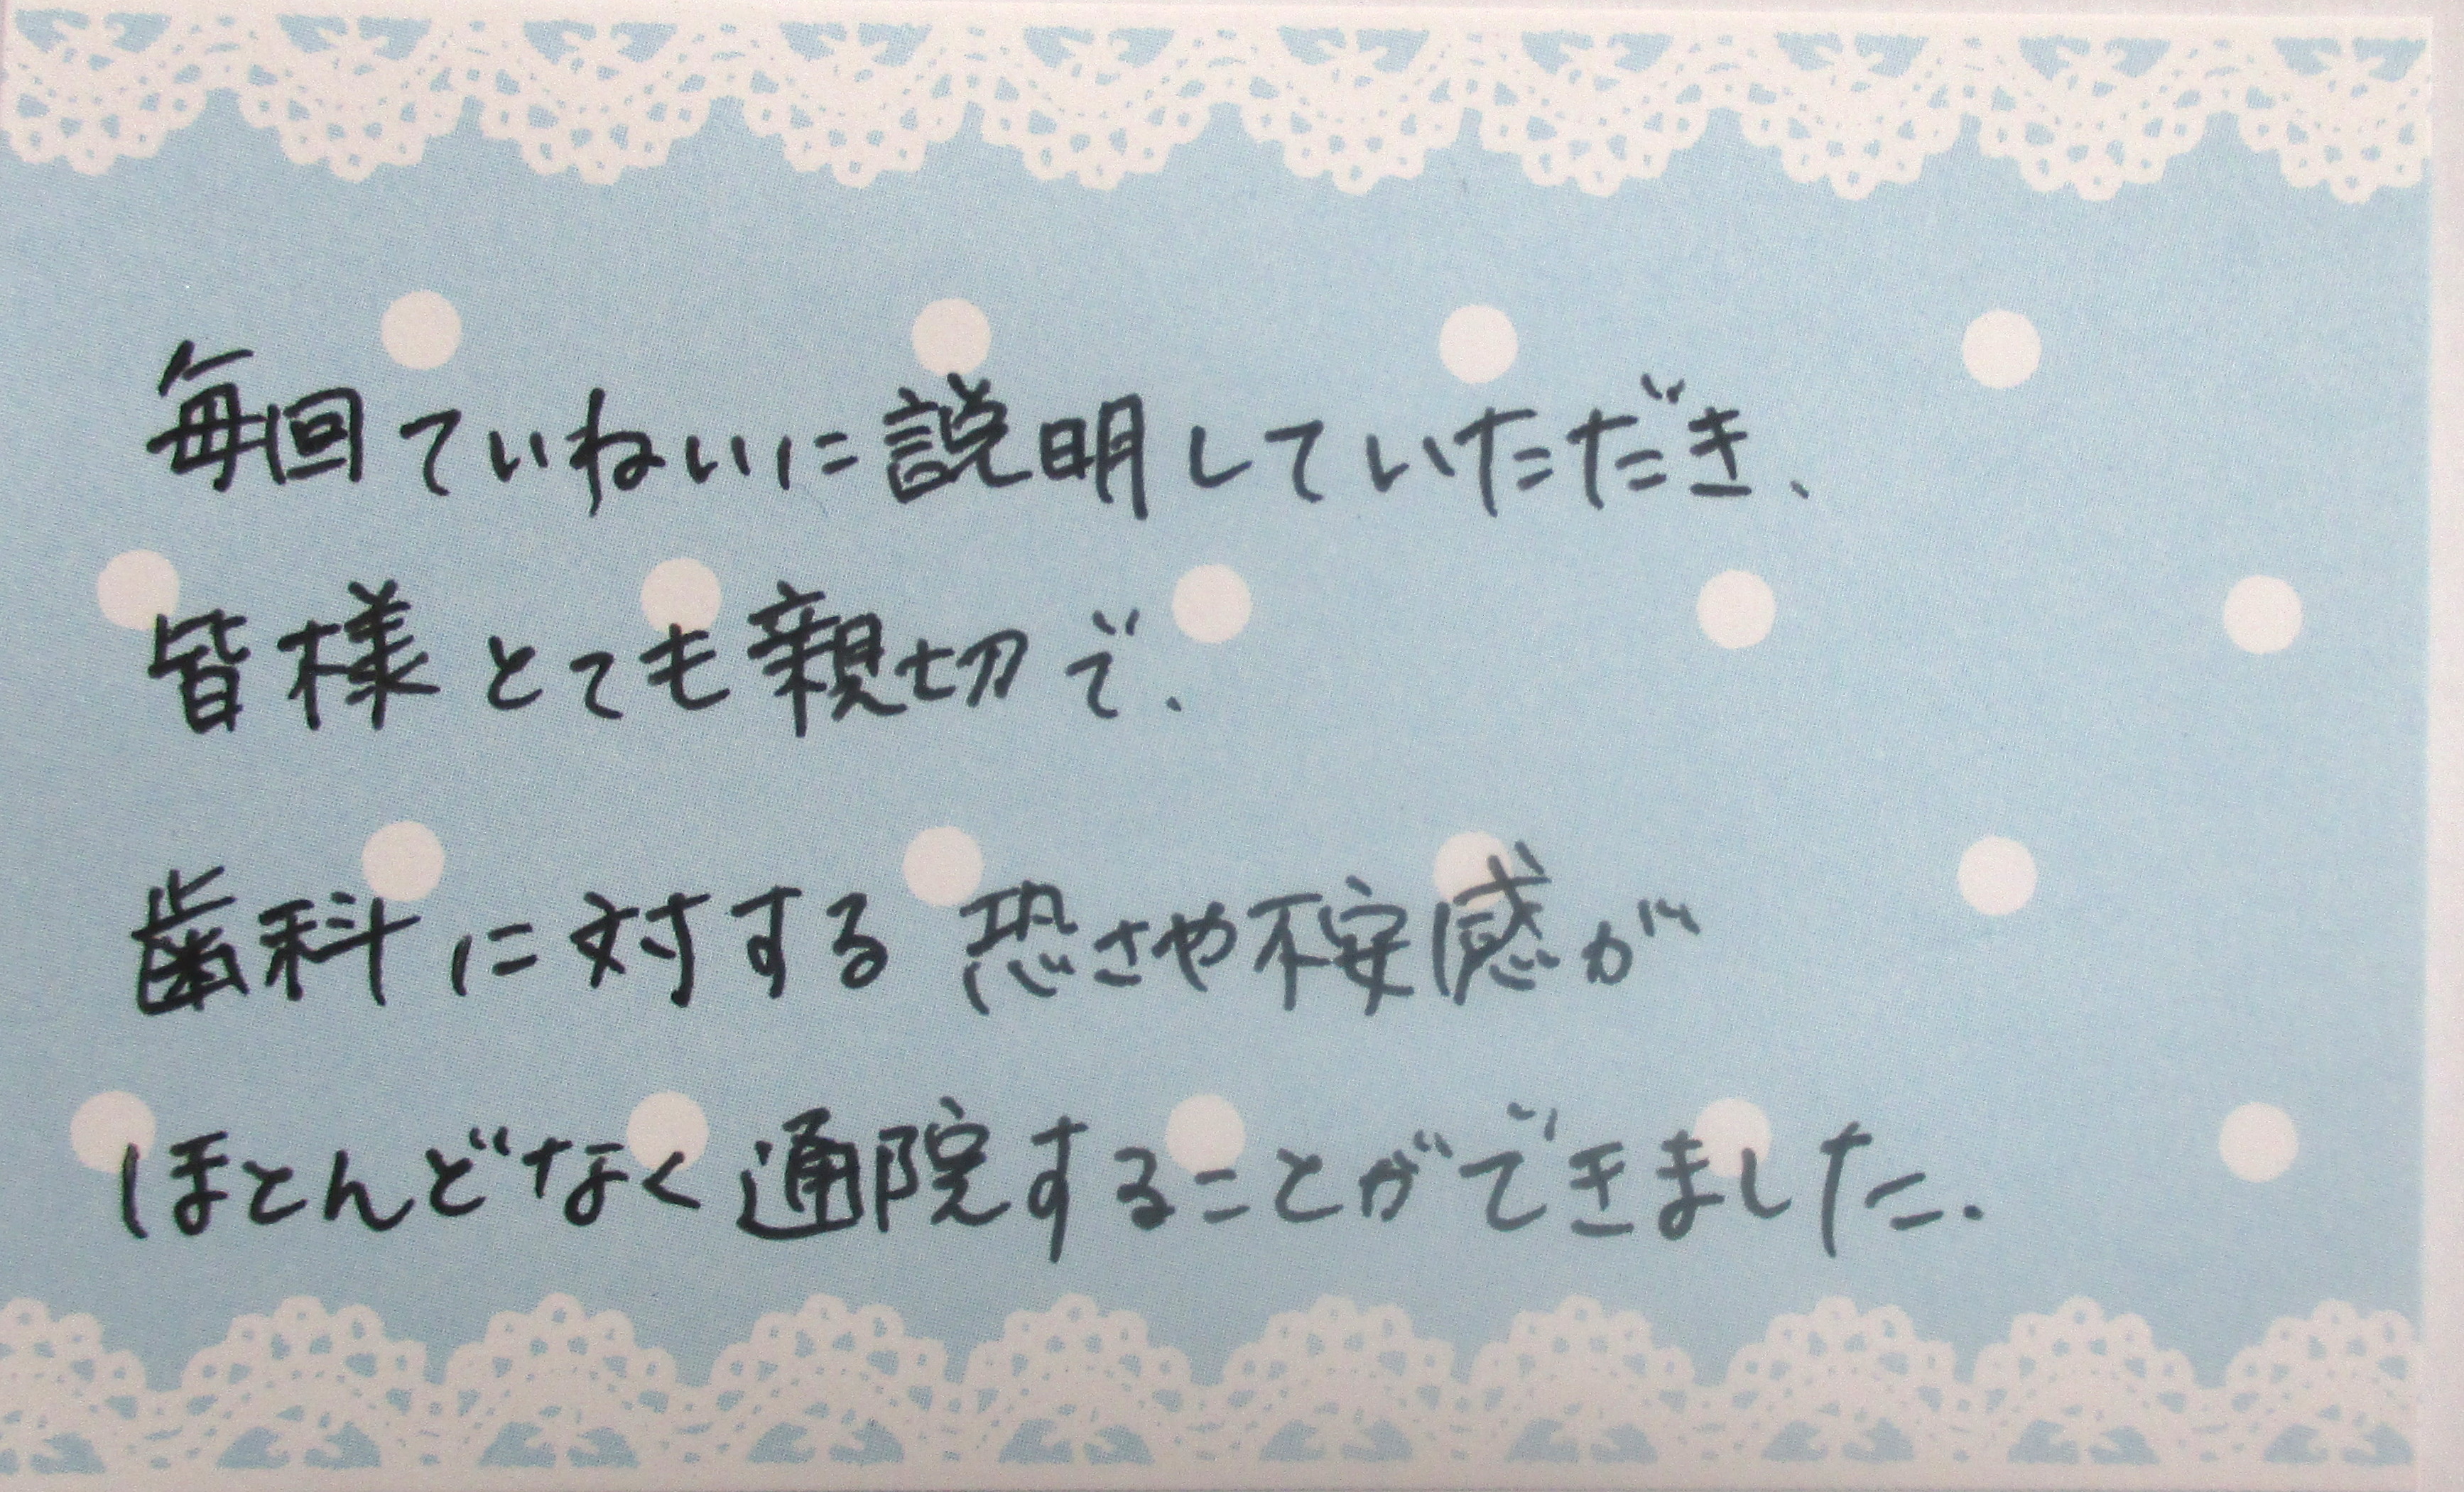 毎回ていねいに説明していただき、
皆様とても親切で、
歯科に対する恐さや不安感が
ほとんどなく通院することができました.